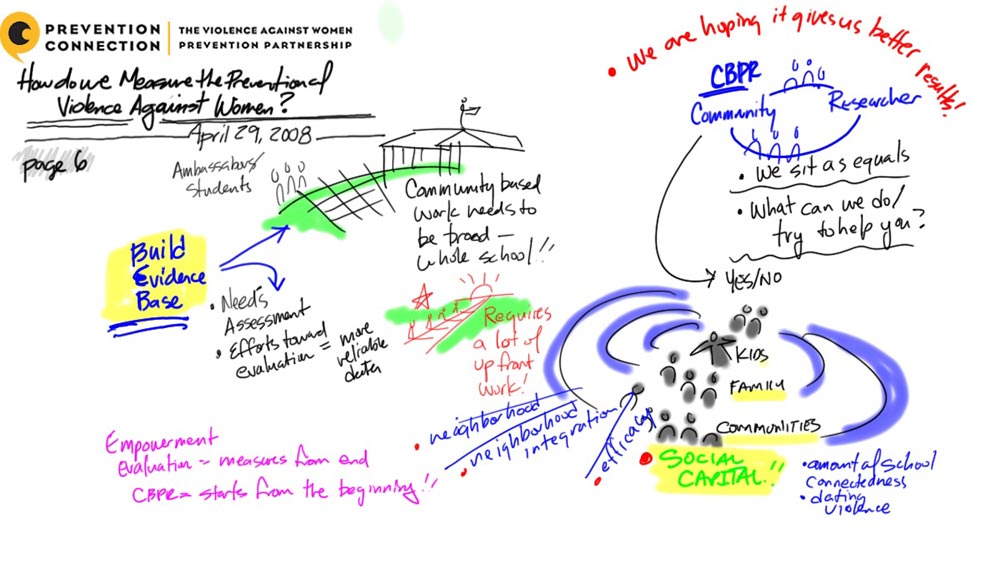 PREVENTION
CONNECTION
THE VIOLENCE AGAINST WOMEN
PREVENTION PARTNERSHIP
How do we Measure the Prevention of
Violence Against Women?
April 29, 2008
page 6
Ambassabors/
students
Community based
work needs to
be broad —
whole school!!
Build
Evidence
Base
• Needs
Assessment
• Efforts toward
evaluation = more
reliable
data
Requires
a lot of
up front
work!
Empowerment
Evaluation = measures from end
CBPR = starts from the beginning!!
• We are hoping it gives us better results!
CBPR
Community
Researcher
• We sit as equals
• What can we do/
try to help you?
YES/NO
KIDS
FAMILY
COMMUNITIES
• neighborhood
• neighborhood
integration
• efficacy
• SOCIAL
CAPITAL!!
• amount of school
connectedness
• dating
violence